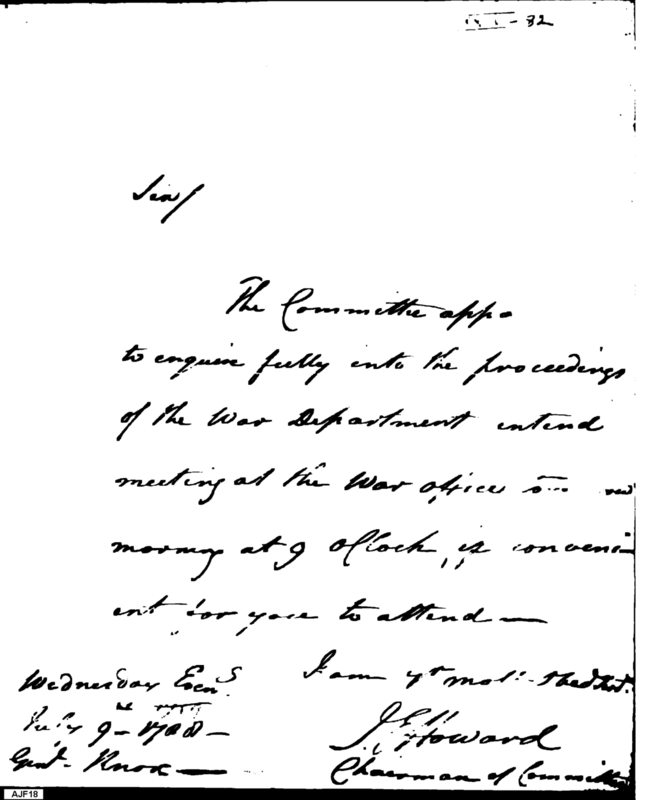 - 82
Sir/
The Committee appo
to enquire fully into the proceedings
of the War Department intend
meeting at the War office
morning at 9 oClock, if conveni
ent for you to attend —
I am yr mot. Obedt.
Wednesday Eveng
July 9 - 1788 -
J E Howard
Genl. Knox —
Chairman of Committee
AJF18